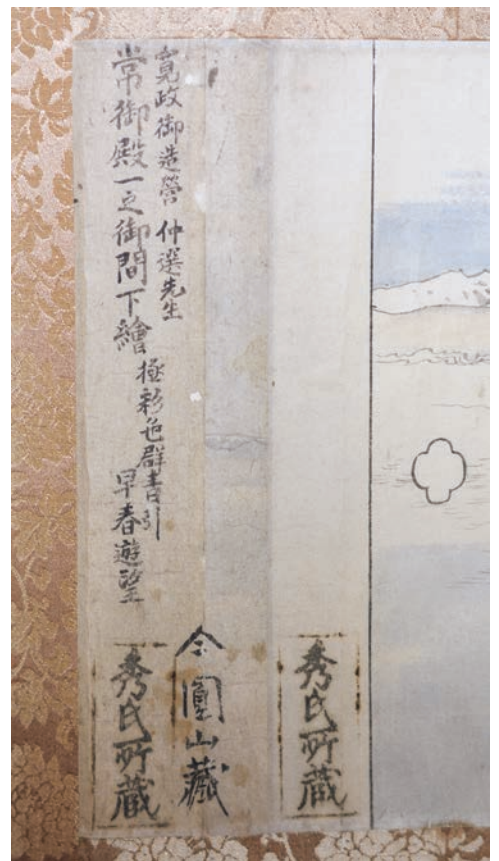 寛政御造営 仲選先生
常御殿一之御間下繪
極彩色群青引
早春遊望
秀氏所蔵
圓山藏
秀氏所蔵